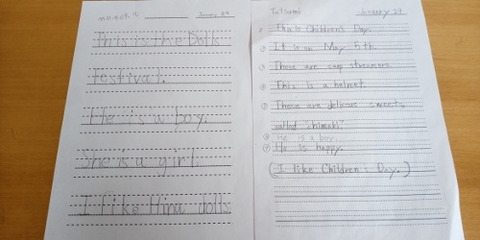 January 29
This is the Dolls
Festival.
He is a boy.
She is a girl.
I like Hina dolls.
Tatsumi January 29
① This is Children's Day.
② It is on May 5th.
③ These are carp streamers.
④ This is a helmet.
⑤ These are delicious sweets
called
He is a boy.
⑦ He is happy.
(I like Children's Day.)